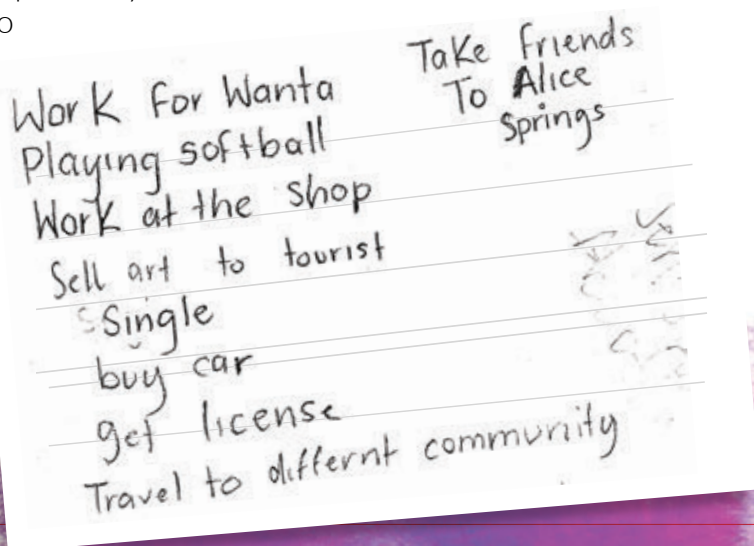 Work for Wanta
Playing softball
Work at the shop
Sell art to tourist
Single
buy car
get license
Travel to differnt community
Take friends
To Alice
Springs